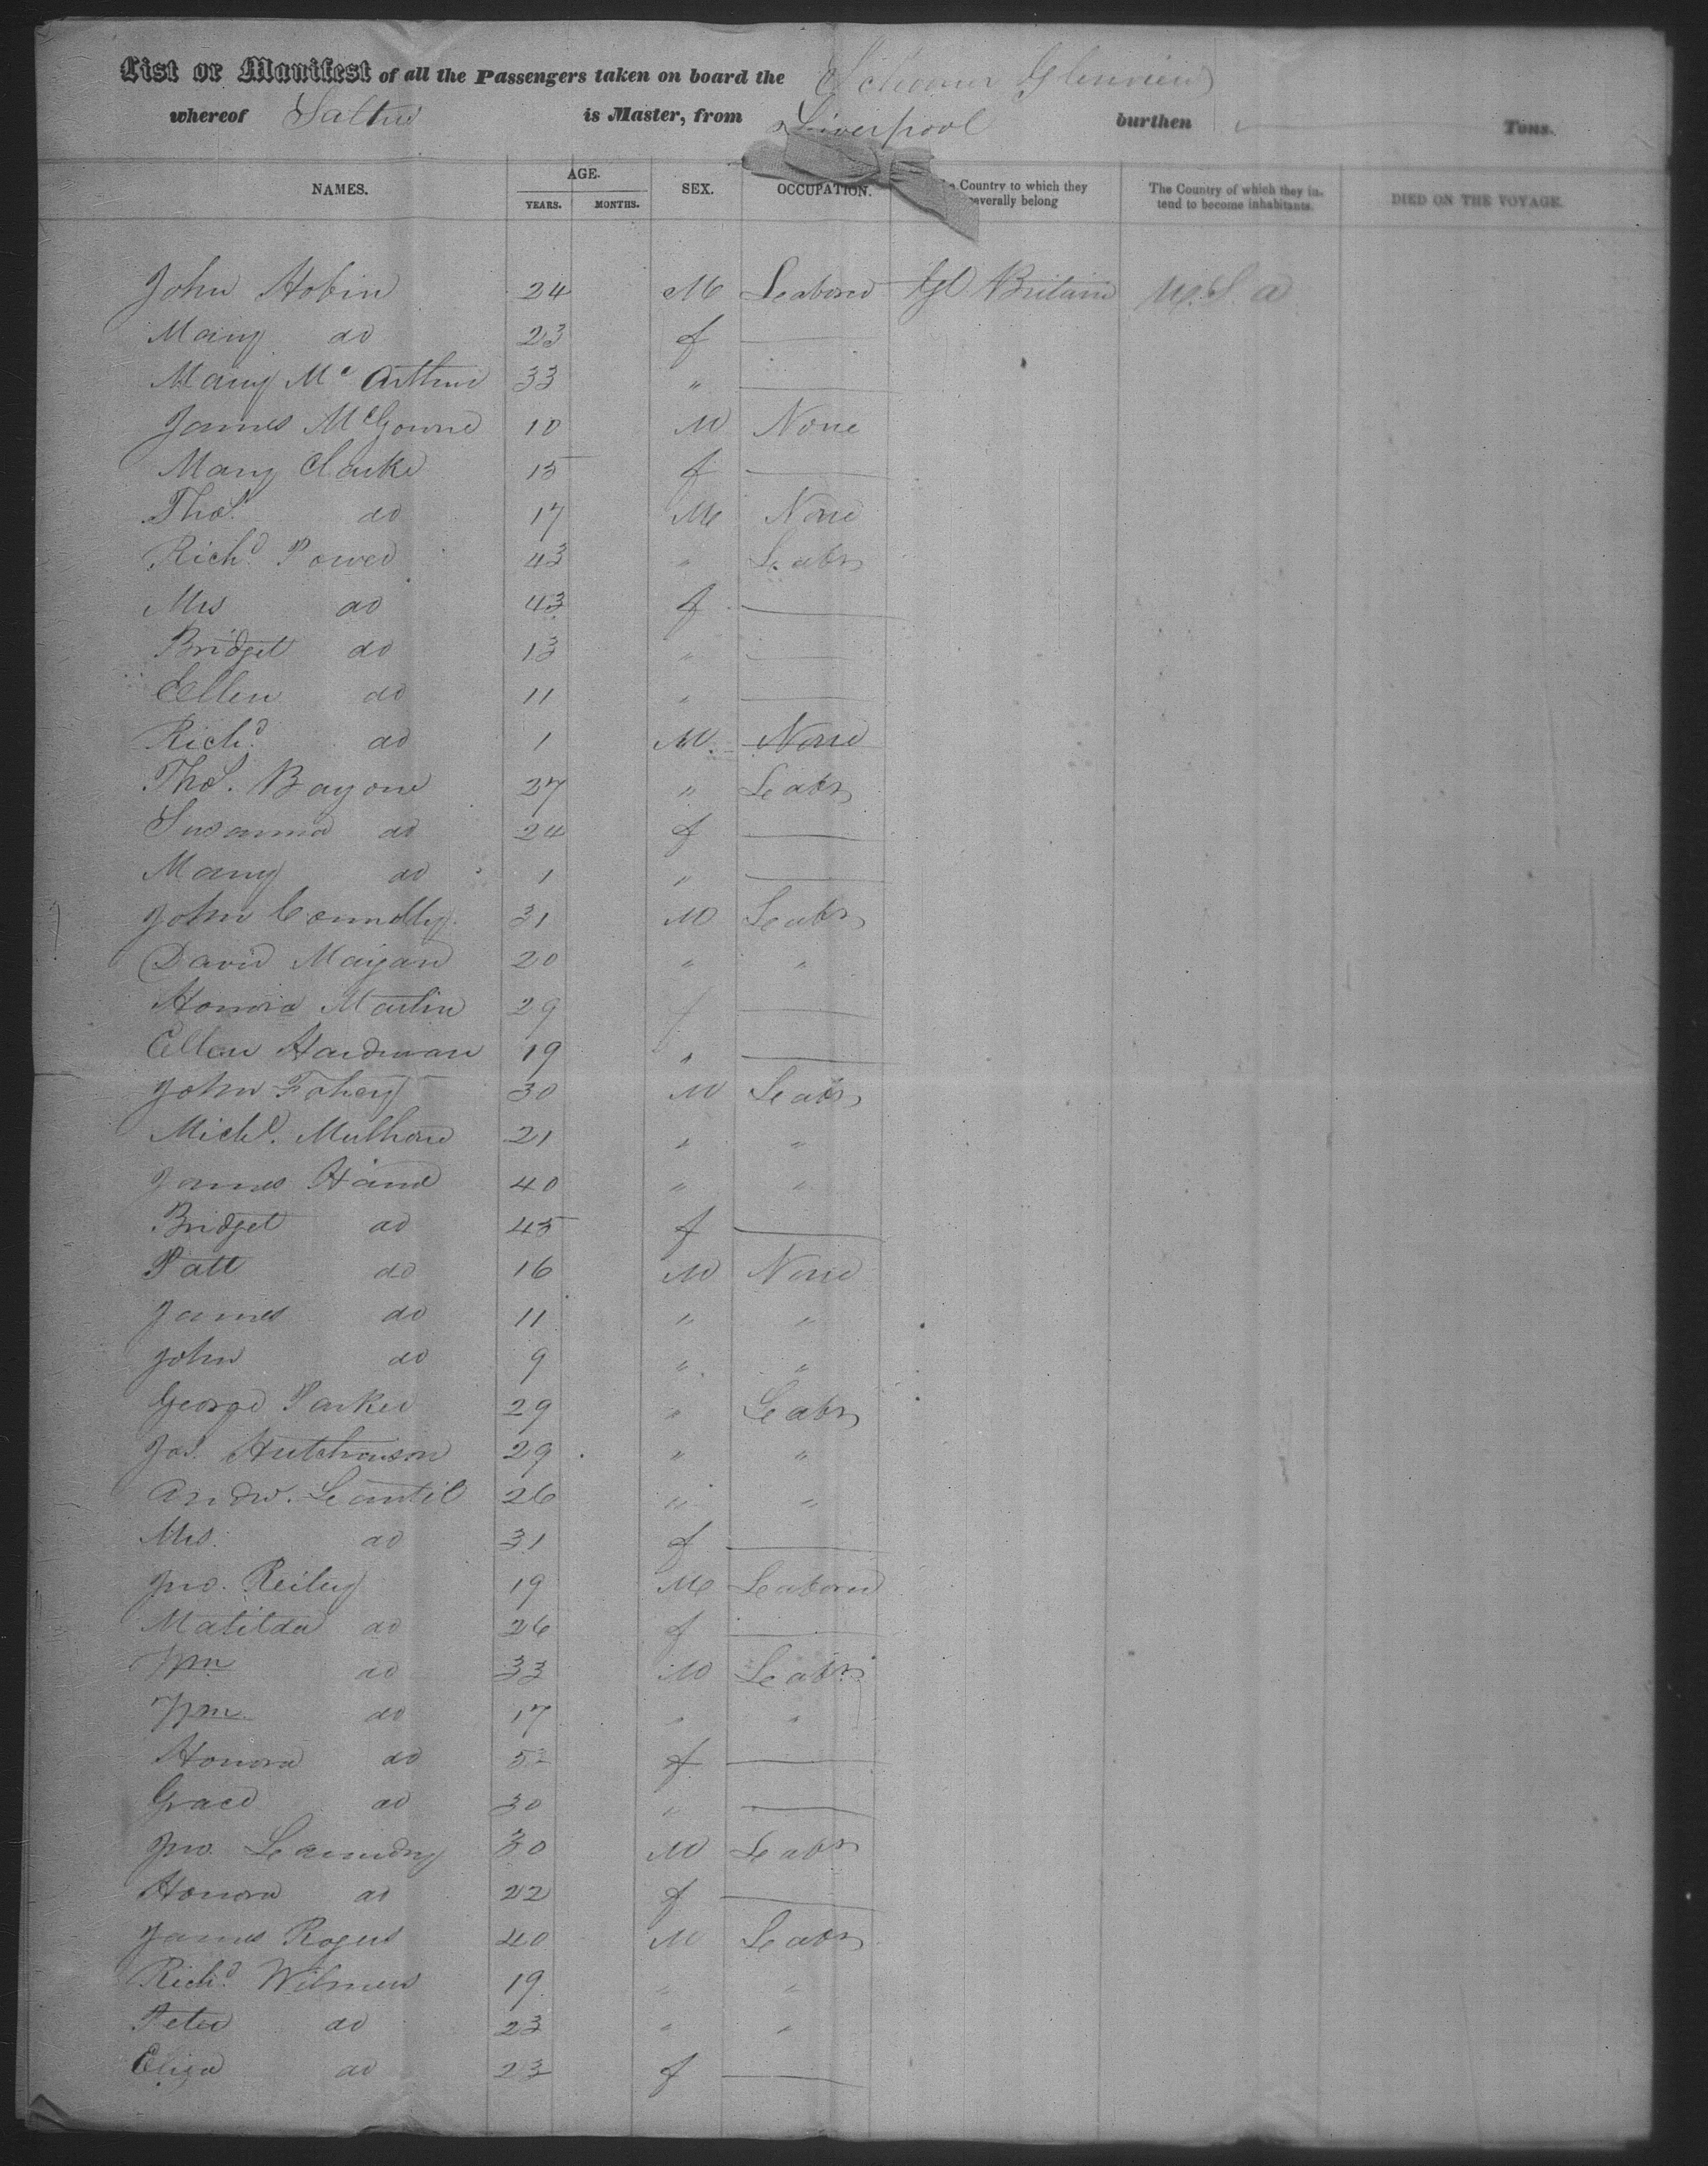 List or Manifest of all the Passengers taken on board the Schooner Glenview
whereof Salter is Master, from Liverpool burthen — Tons.
NAMES. AGE. YEARS. MONTHS. SEX. OCCUPATION. Country to which they severally belong The Country of which they in-tend to become inhabitants. DIED ON THE VOYAGE.
John Hobin 24 M Labored Gt Britain U.S.a
Mary do 23 f —
Mary Mc Arthur 33 " —
James McGowne 10 M None
Mary Clarke 15 f —
Thos. do 17 M None
Richd. Power 43 " Labr
Mrs do 43 f —
Bridget do 13 " —
Ellen do 11 " —
Richd. do 1 M. None
Thos. Bayone 27 " Labr
Susanna do 24 f —
Mary do 1 " —
John Connolly 31 M Labr
David Maigan 20 " "
Honora Martin 29 f —
Ellen Hardman 19 " —
John Fahey 30 M Labr
Michl. Mulhone 21 " "
James Hand 40 " "
Bridget do 45 f —
Patt do 16 M None
James do 11 " "
John do 9 " "
George Parker 29 " Labr
Jos. Hutchouson 29 " "
Andw. Leantil 26 " "
Mrs. do 31 f —
Jno. Reiley 19 M Labored
Matilda do 26 f —
Wm do 33 M Labr
Wm. do 17 " "
Honora do 5 f —
Grace do 30 " —
Jno. Leaundry 30 M Labr
Honora do 22 f —
James Rogers 40 M Labr
Richd. Wilmers 19 " "
Peter do 23 " "
Eliza do 23 f —